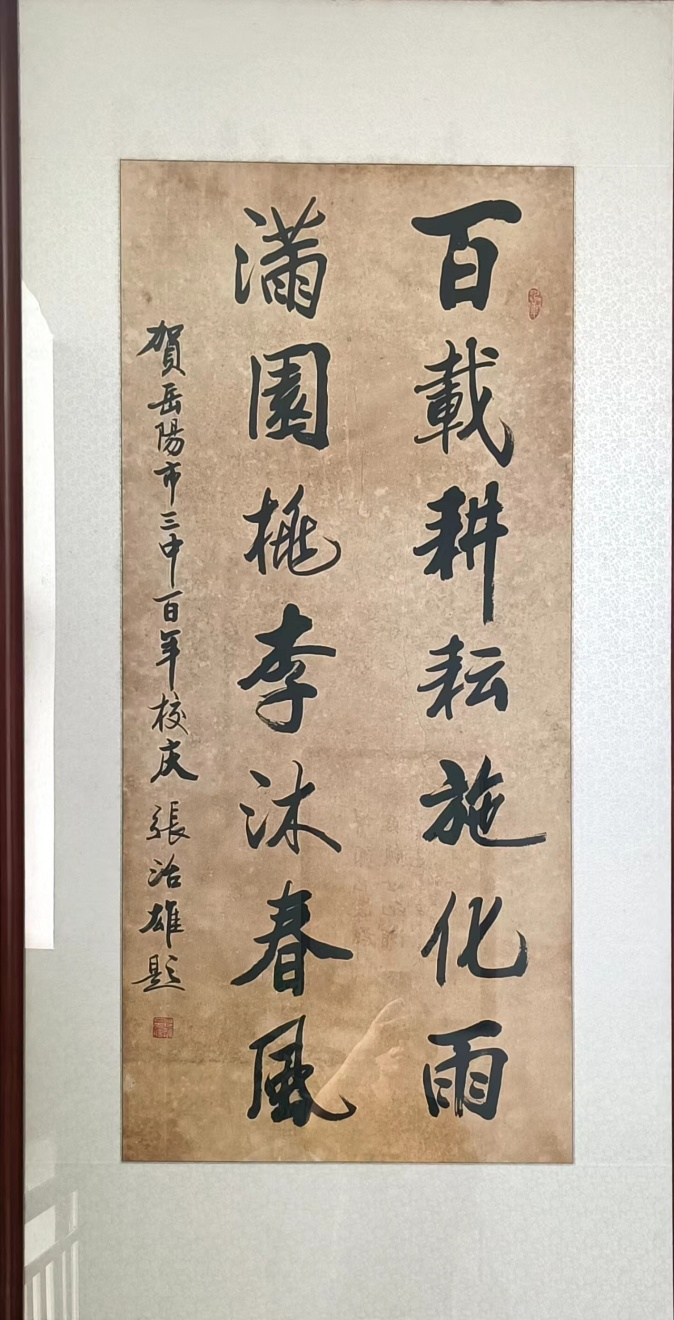 百載耕耘施化雨
滿園桃李沐春風
賀岳陽市三中百年校庆 張治雄题